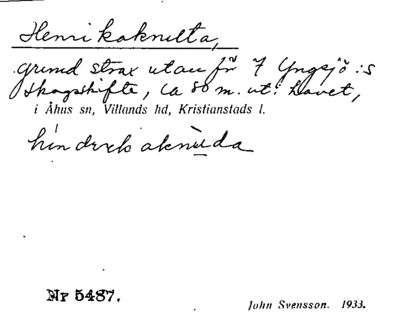 Henrikaknulta,
grund strax utan för 7 Yngsjö:s
skogskifte, ca 80 m. ut i havet,
i Åhus sn, Villands hd, Kristianstads l.
hindreksaknuda
Nr 5487.
John Svensson. 1933.